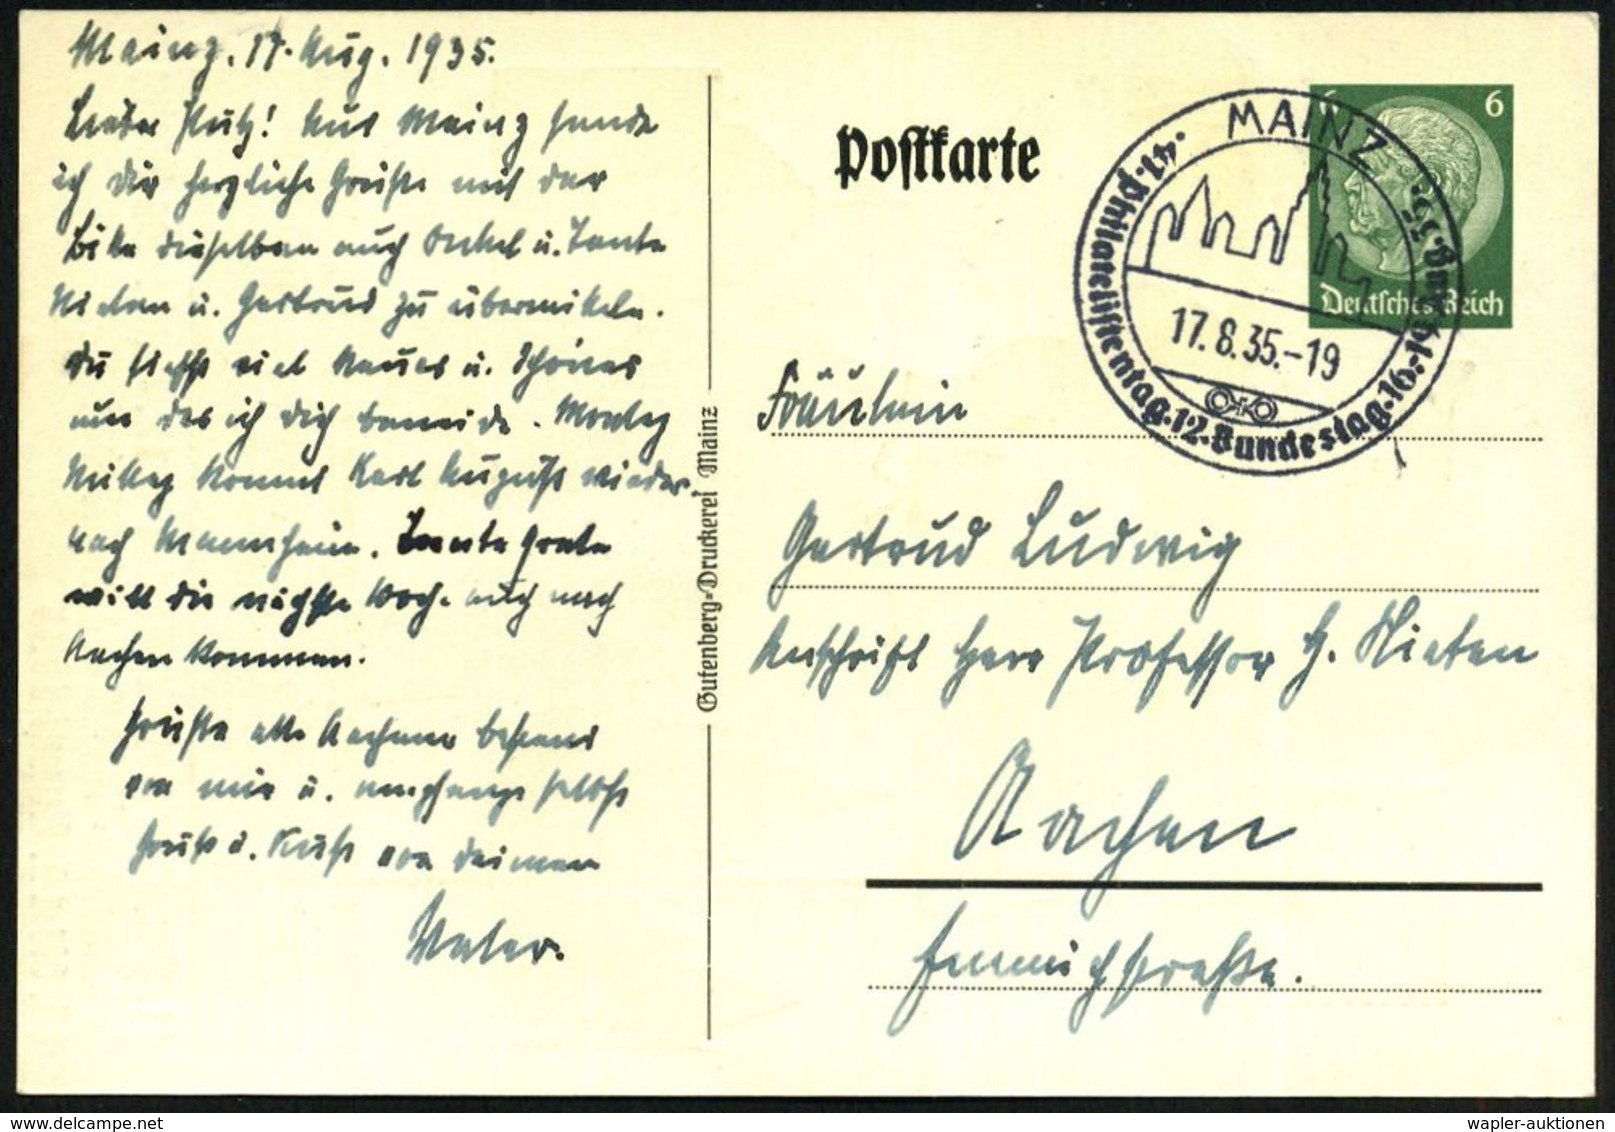 Mainz, 17. Aug. 1935.
Lieber Putz! Aus Mainz sende
ich Dir herzliche Grüße mit der
Bitte dieselben auch Onkel u. Tante
Nieten u. Gertrud zu übermitteln.
Du siehst viel Neues u. Schönes
um das ich Dich beneide. Montag
Mittag kommt Karl August wieder
nach Mannheim. Tante Grete
will die nächste Woche auch nach
Aachen kommen.
Grüße alle Aachener bestens
von mir u. empfange selbst
Gruß u. Kuß von deinem
Vater.
Gutenberg=Druckerei Mainz
Postkarte
MAINZ
41. Philatelistentag · 12. Bundestag · 16.-19. Aug. 35.
17.8.35.-19
6
6
Deutsches Reich
Fräulein
Gertrud Ludwig
Anschrift Herr Professor H. Nieten
Aachen
wapler-auktionen